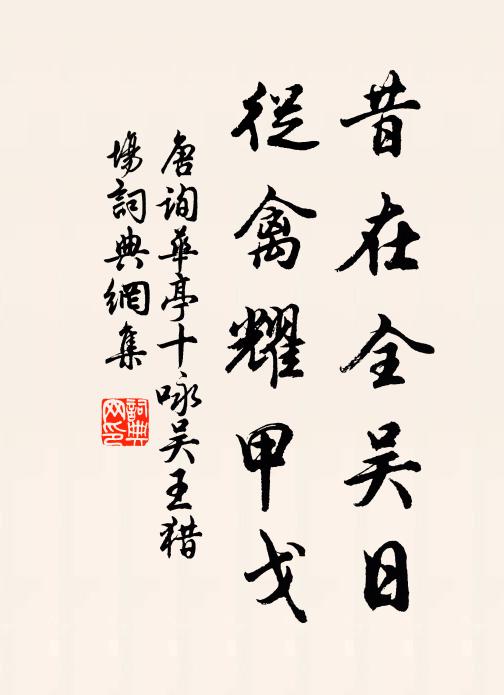 昔在全吴日
從禽耀甲戈
唐詢華亭十咏吴王猎
場詞典網集
詞典
网印